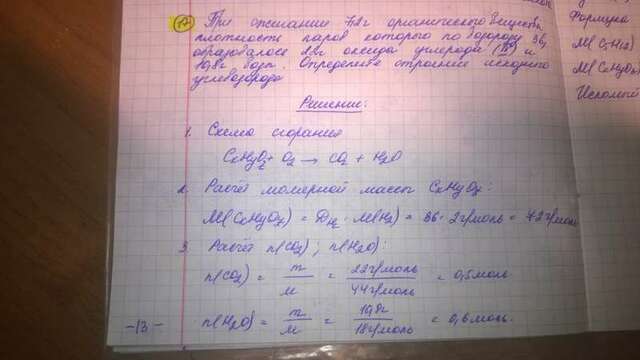 А) При сжигании 7,2г органического вещества,
плотность паров которого по водороду 36,
образовалось 22г оксида углерода (IV) и
10,8г воды. Определите строение исходного
углеводорода
Решение:
1. Схема сгорания
CxHyOz + O2 → CO2 + H2O
2. Расчёт молярной массы CxHyOz:
M(CxHyOz) = DH2 · M(H2) = 36 · 2г/моль = 72г/моль
3. Расчёт n(CO2); n(H2O):
n(CO2) = m/M = 22г/моль / 44г/моль = 0,5моль
n(H2O) = m/M = 10,8г / 18г/моль = 0,6моль.
-13-
Формула
M(C5H12)
Искомой